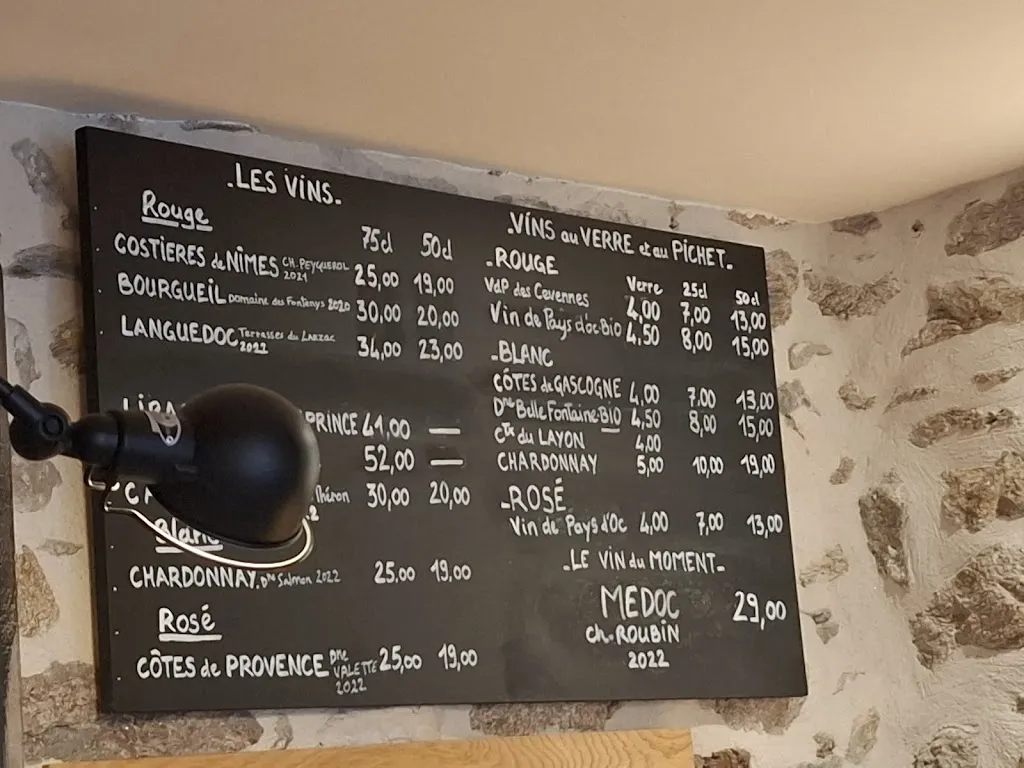 .LES VINS.
Rouge
75cl 50cl
COSTIERES de NÎMES CH. PEYQUEROL 2021 25,00 19,00
BOURGUEIL Domaine des Fontenys 2020 30,00 20,00
LANGUEDOC Terrasses du Larzac 2022 34,00 23,00
PRINCE 41,00 —
52,00 —
30,00 20,00
Blanc
CHARDONNAY. Dne Salmon 2022 25.00 19,00
Rosé
CÔTES de PROVENCE Dne VALETTE 2022 25,00 19,00
.VINS au VERRE et au PICHET.
-ROUGE
Verre 25cl 50cl
VdP des Cevennes 4,00 7,00 13,00
Vin de Pays d'oc-Bio 4,50 8,00 15,00
-BLANC
CÔTES de GASCOGNE 4,00 7.00 13,00
Dne Belle Fontaine BIO 4,50 8,00 15,00
CTX du LAYON 4,00
CHARDONNAY 5,00 10,00 19,00
-ROSÉ
Vin de Pays d'Oc 4,00 7,00 13,00
-LE VIN du MOMENT-
MEDOC 29,00
ch. ROUBIN
2022